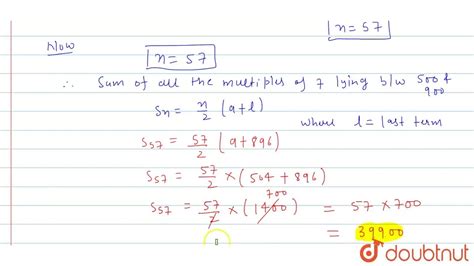 n = 57
Now
n = 57
∴ Sum of all the multiples of 7 lying b/w 500 & 900
Sn = n/2 (a+l)
where l = last term
S57 = 57/2 (a+896)
S57 = 57/2 × (504 + 896)
700
S57 = 57/2 × (1400) = 57 × 700
= 39900
doubtnut